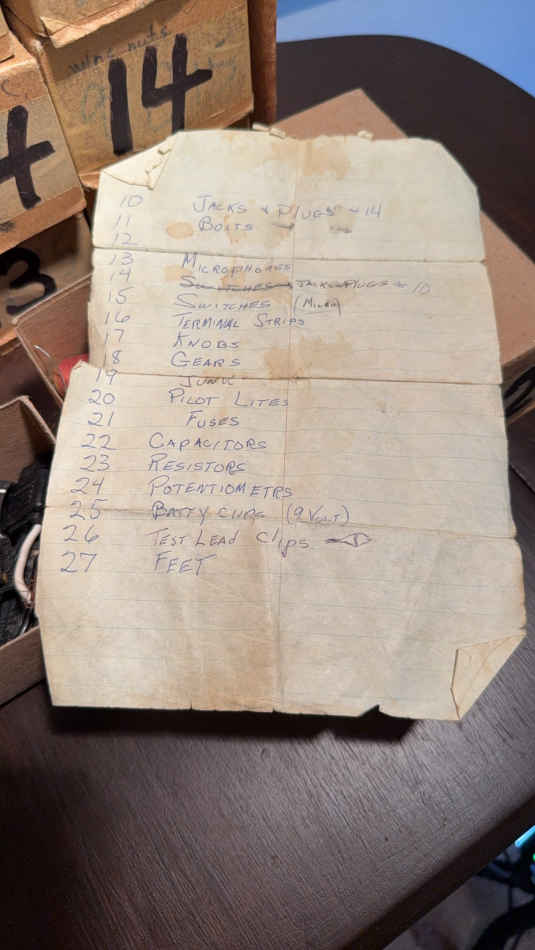 wire nuts
14
4
3
10 JACKS & PLUGS ~ 14
11 BOLTS
12
13 MICROPHONES
14 SWITCHES JACKS & PLUGS ~ 10
15 SWITCHES (MICRO)
16 TERMINAL STRIPS
17 KNOBS
18 GEARS
19 JUNK
20 PILOT LITES
21 FUSES
22 CAPACITORS
23 RESISTORS
24 POTENTIOMETRS
25 BATTY CLIPS (9 VOLT)
26 TEST LEAD Clips
27 FEET